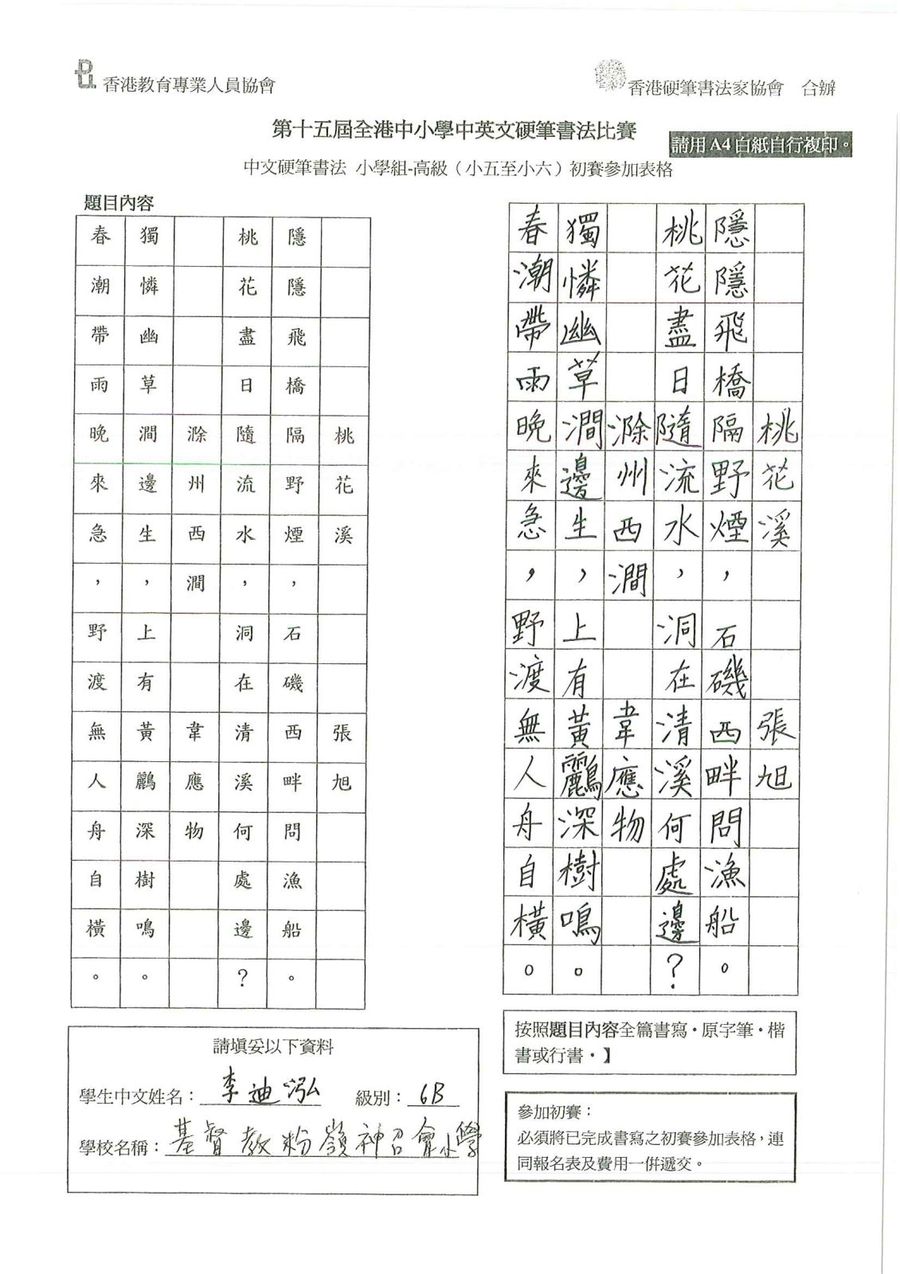 香港教育專業人員協會
香港硬筆書法家協會 合辦
第十五屆全港中小學中英文硬筆書法比賽
請用A4白紙自行複印。
中文硬筆書法 小學組-高級（小五至小六）初賽參加表格
題目內容
桃花溪 張旭
隱隱飛橋隔野煙，石磯西畔問漁船。
桃花盡日隨流水，洞在清溪何處邊？
滁州西澗 韋應物
獨憐幽草澗邊生，上有黃鸝深樹鳴。
春潮帶雨晚來急，野渡無人舟自橫。
桃花溪 張旭
隱隱飛橋隔野煙，石磯西畔問漁船。
桃花盡日隨流水，洞在清溪何處邊？
滁州西澗 韋應物
獨憐幽草澗邊生，上有黃鸝深樹鳴。
春潮帶雨晚來急，野渡無人舟自橫。
請填妥以下資料
學生中文姓名：李迪泓 級別：6B
學校名稱：基督教粉嶺神召會小學
按照題目內容全篇書寫，原字筆，楷
書或行書。】
參加初賽：
必須將已完成書寫之初賽參加表格，連
同報名表及費用一併遞交。